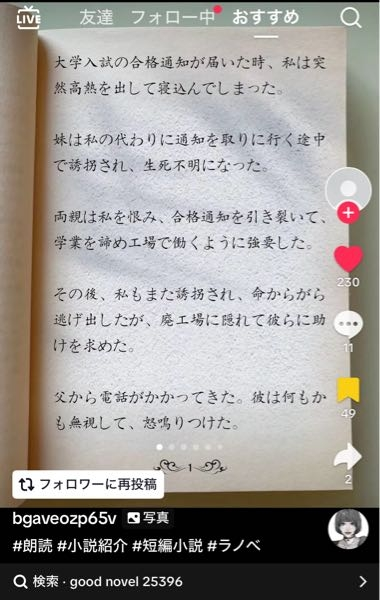 LIVE
友達 フォロー中 おすすめ
大学入試の合格通知が届いた時、私は突
然高熱を出して寝込んでしまった。
妹は私の代わりに通知を取りに行く途中
で誘拐され、生死不明になった。
両親は私を恨み、合格通知を引き裂いて、
学業を諦め工場で働くように強要した。
その後、私もまた誘拐され、命からがら
逃げ出したが、廃工場に隠れて彼らに助
けを求めた。
父から電話がかかってきた。彼は何もか
も無視して、怒鳴りつけた。
1
230
11
49
2
フォロワーに再投稿
bgaveozp65v 写真
#朗読 #小説紹介 #短編小説 #ラノベ
検索・good novel 25396